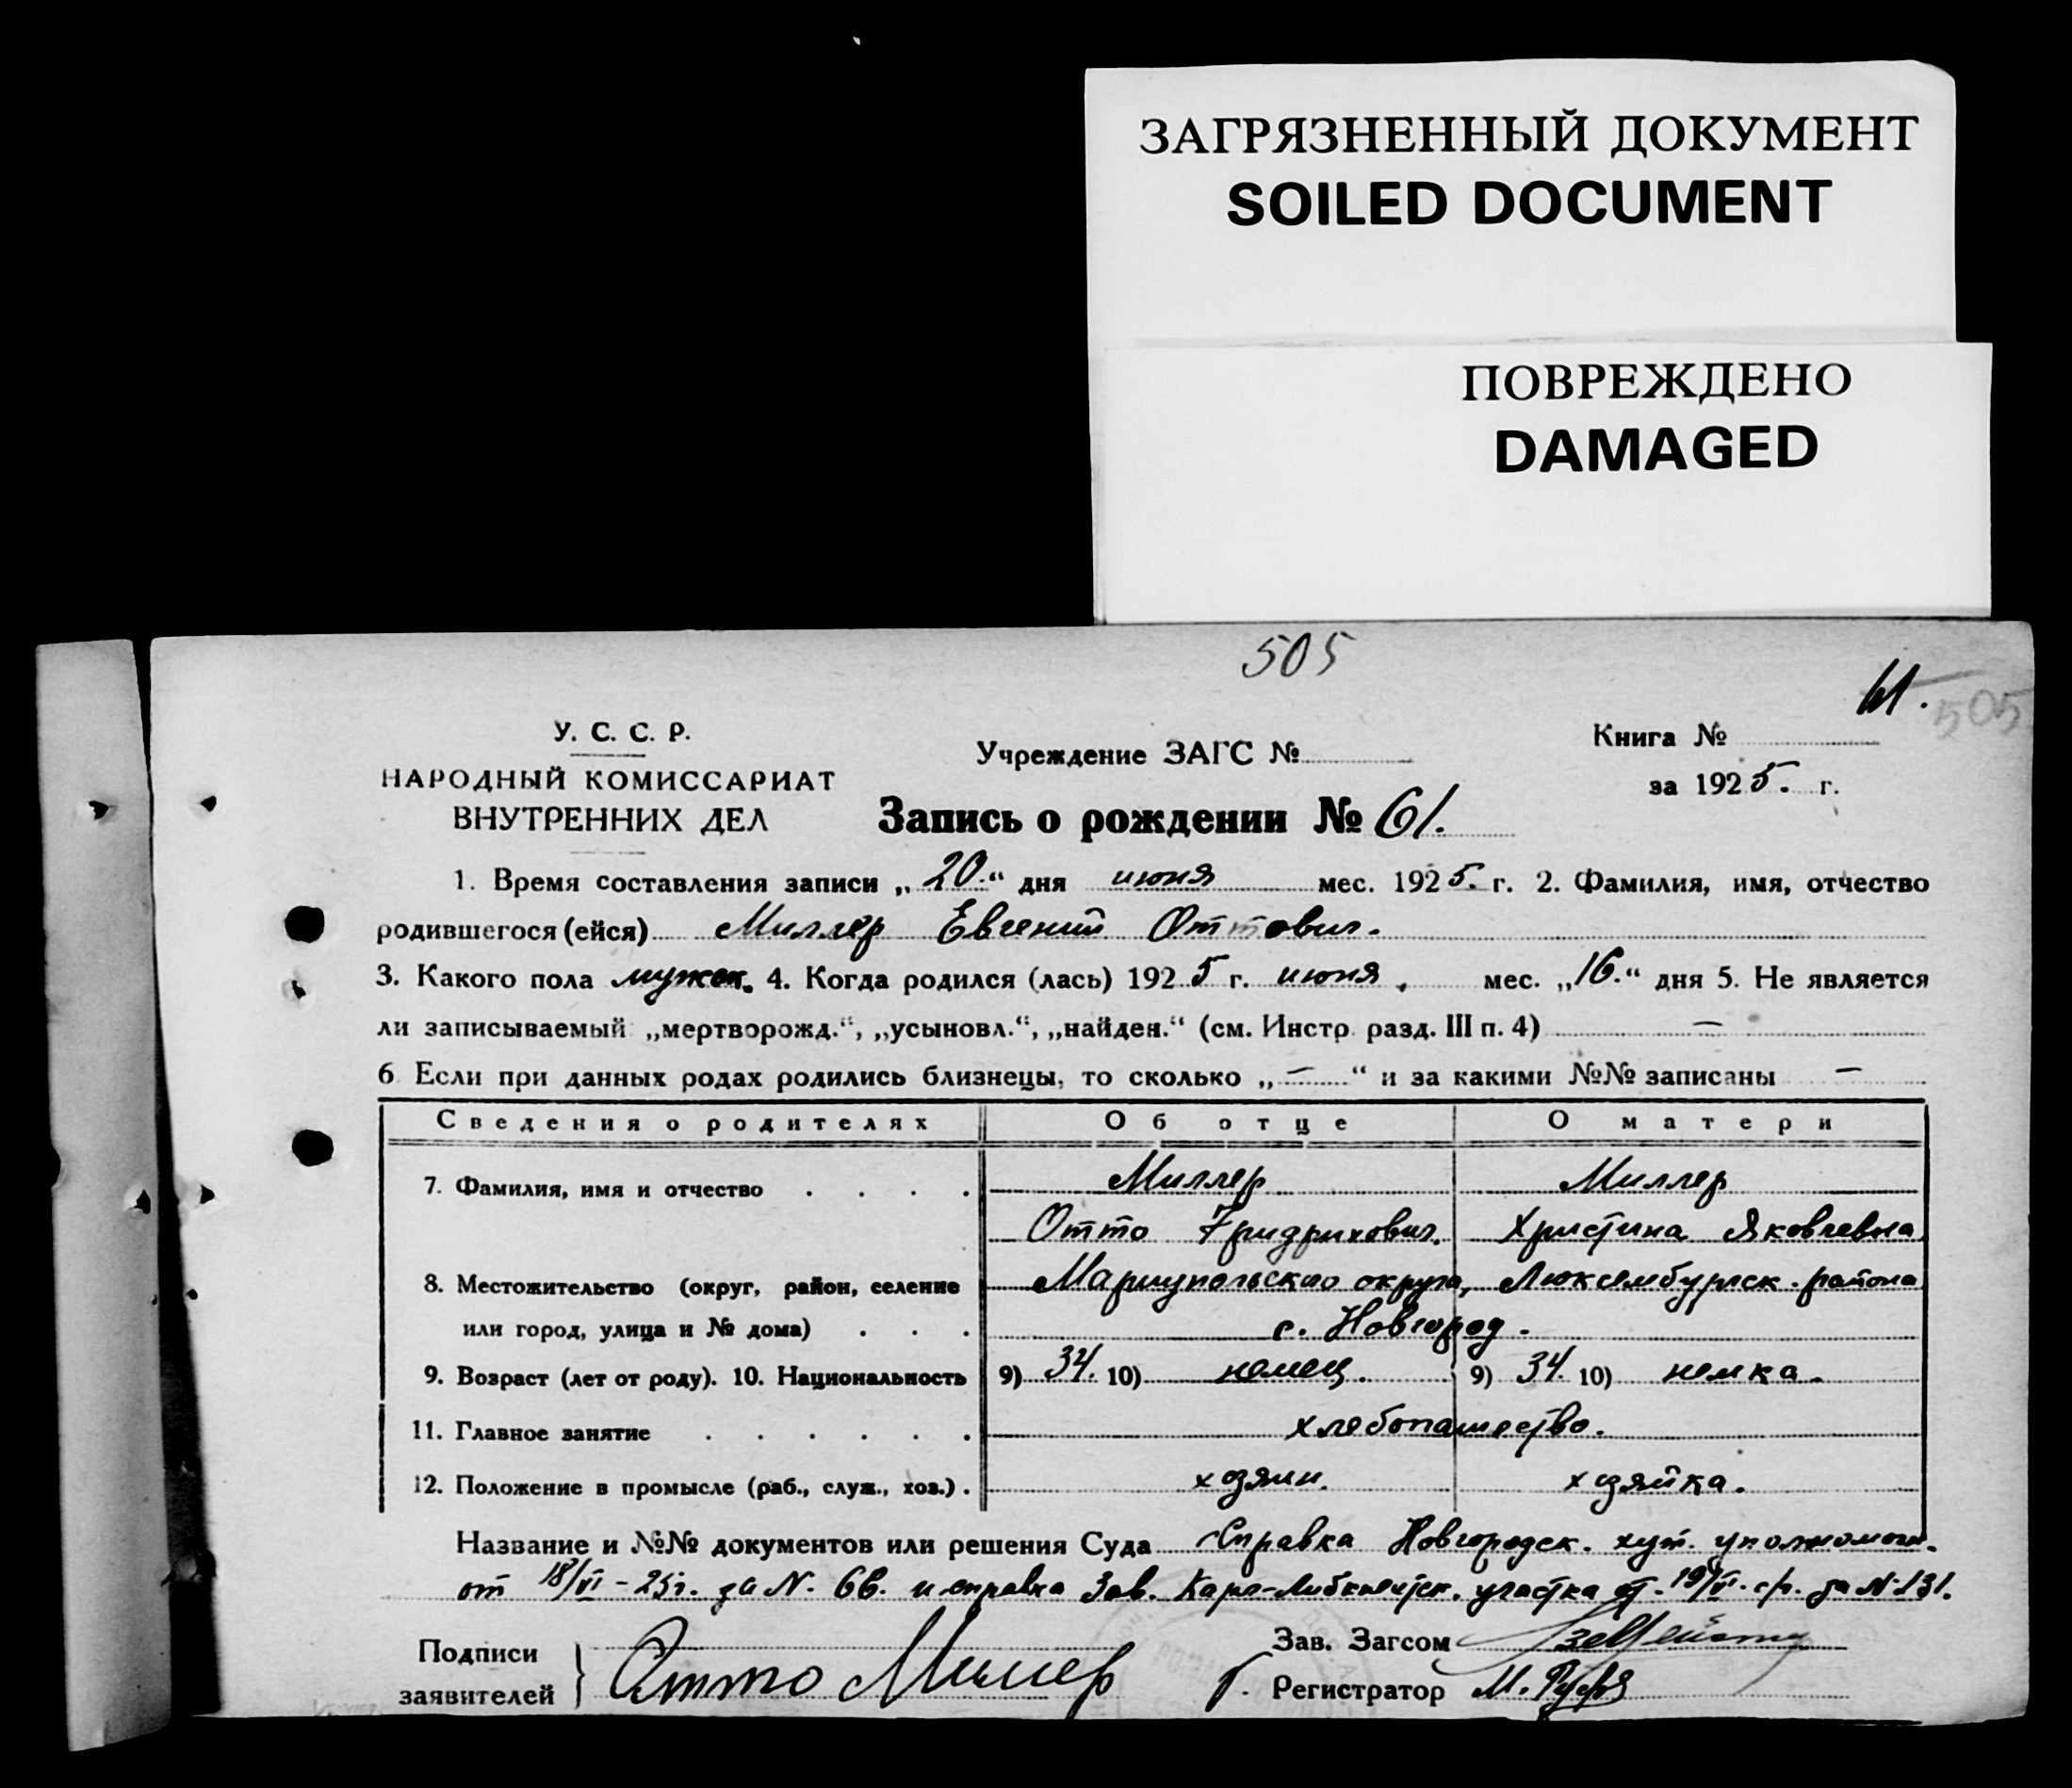 ЗАГРЯЗНЕННЫЙ ДОКУМЕНТ
SOILED DOCUMENT
ПОВРЕЖДЕНО
DAMAGED
505
61.
505
У. С. С. Р.
НАРОДНЫЙ КОМИССАРИАТ
ВНУТРЕННИХ ДЕЛ
Учреждение ЗАГС №
Книга №
за 1925. г.
Запись о рождении № 61.
1. Время составления записи „20.“ дня июня мес. 1925. г. 2. Фамилия, имя, отчество
родившегося (ейся) Миллер Евгений Оттович.
3. Какого пола мужск. 4. Когда родился (лась) 1925 г. июня, мес. „16.“ дня 5. Не является
ли записываемый „мертворожд.“, „усыновл.“, „найден.“ (см. Инстр. разд. III п. 4) —
6 Если при данных родах родились близнецы, то сколько „—“ и за какими №№ записаны —
Сведения о родителях Об отце О матери
7. Фамилия, имя и отчество . . . . Миллер Миллер
Отто Фридрихович. Христина Яковлевна
8. Местожительство (округ, район, селение Мариупольского округа, Люксембургск. района
или город, улица и № дома) . . . с. Новгород.
9. Возраст (лет от роду). 10. Национальность 9) 34. 10) немец. 9) 34. 10) немка.
11. Главное занятие . . . . . . хлебопашество.
12. Положение в промысле (раб., служ., хоз.) . хозяин. хозяйка.
Название и №№ документов или решения Суда Справка Новгородск. хут. уполномоч.
от 18/VI – 25г. за N. 66. и справка Зав. Карл-Либкнехтск. участка от 19/VI. с/г. за N 131.
Подписи
заявителей } Отто Миллер
Зав. Загсом
Г. Регистратор М.